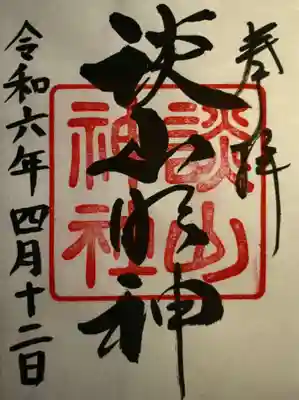 奉拝
談山明神
談山
神社
令和六年四月十二日